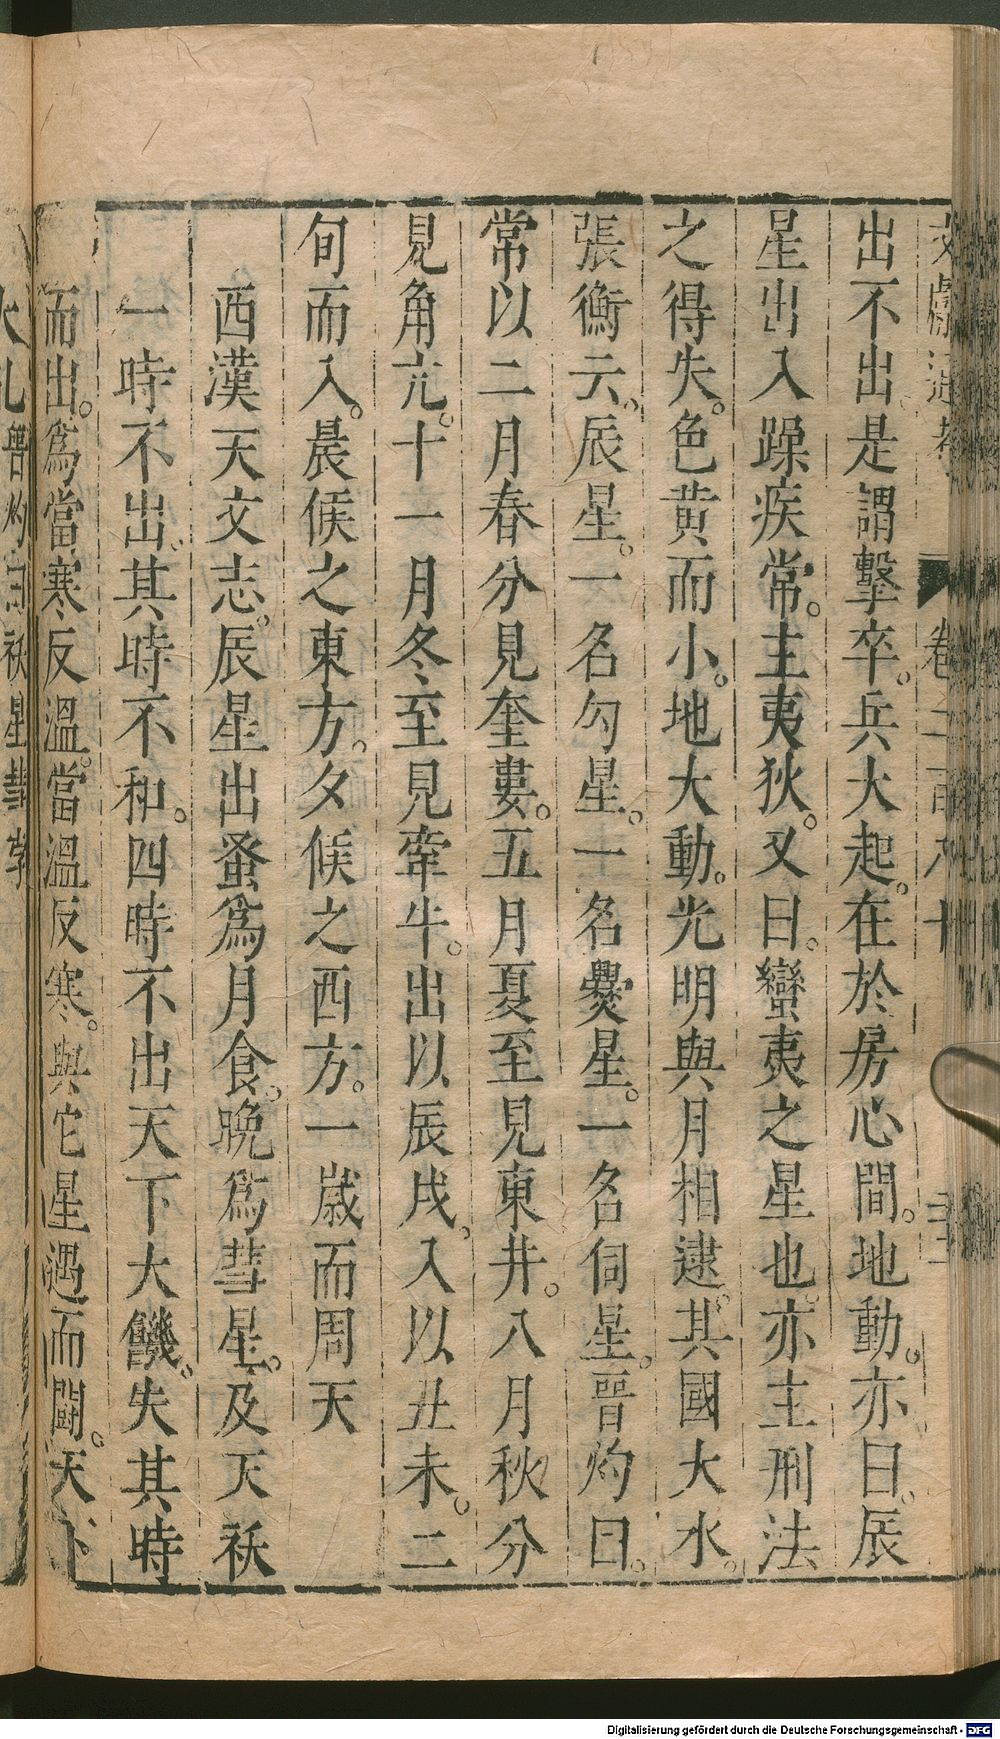 出不出是謂擊卒。兵大起。在於房心間。地動。亦曰。辰
星出入躁疾常。主夷狄。又曰。蠻夷之星也。亦主刑法
之得失。色黃而小。地大動。光明與月相逮。其國大水。
張衡云。辰星。一名勾星。一名爨星。一名伺星。晉灼曰。
常以二月春分見奎婁。五月夏至見東井。八月秋分
見角亢。十一月冬至見牽牛。出以辰戌。入以丑未。二
旬而入。晨候之東方。夕候之西方。一歲而周天
西漢天文志。辰星出蚤為月食。晚為彗星。及天祅
一時不出。其時不和。四時不出天下大饑。失其時
而出。為當寒反溫。當溫反寒。與它星遇而鬬。天下
Digitalisierung gefördert durch die Deutsche Forschungsgemeinschaft - DFG